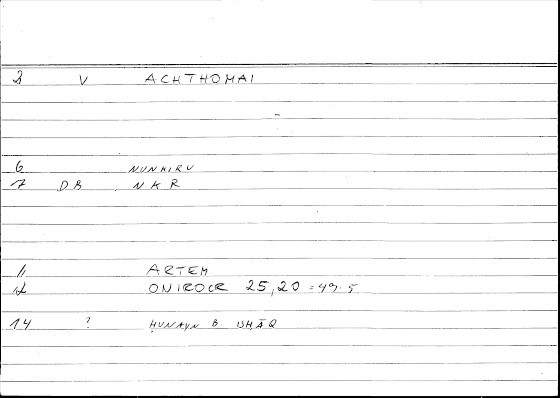 2 V ACHTHOMAI
6 NUNKIRU
7 DB NKR
11 ARTEM
12 ONIROCR 25,20 = 49.5
14 ? ḤUNAYN B. ISḤĀQ